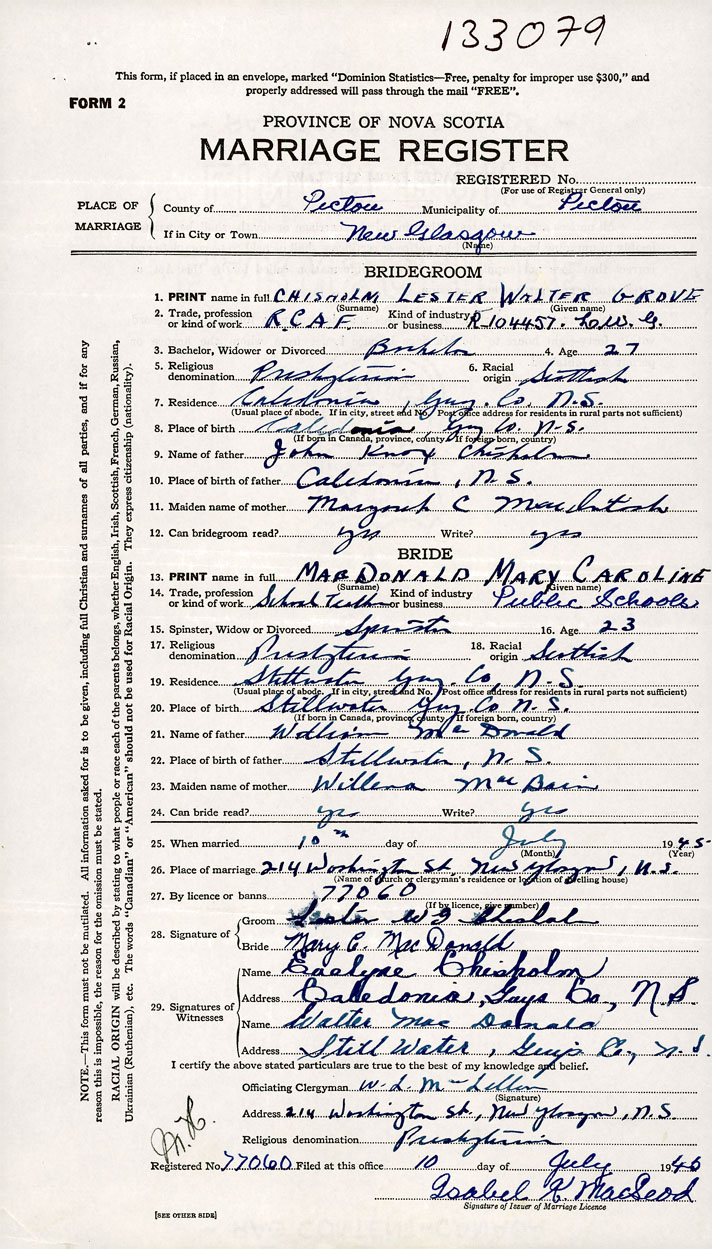 133079
This form, if placed in an envelope, marked "Dominion Statistics—Free, penalty for improper use $300," and
properly addressed will pass through the mail "FREE".
FORM 2
PROVINCE OF NOVA SCOTIA
MARRIAGE REGISTER
REGISTERED No.
(For use of Registrar General only)
PLACE OF MARRIAGE
County of Pictou Municipality of Pictou
If in City or Town New Glasgow
(Name)
BRIDEGROOM
1. PRINT name in full CHISHOLM LESTER WALTER GROVE
(Surname) (Given name)
2. Trade, profession or kind of work R.C.A.F. Kind of industry or business R-104457. L.W.G.
3. Bachelor, Widower or Divorced Bachelor 4. Age 27
5. Religious denomination Presbyterian 6. Racial origin Scottish
7. Residence Caledonia, Guy. Co. N.S.
(Usual place of abode. If in city, street and No. Post office address for residents in rural parts not sufficient)
8. Place of birth Caledonia Guy Co. N.S.
(If born in Canada, province, county. If foreign born, country)
9. Name of father John Knox Chisholm
10. Place of birth of father Caledonia, N.S.
11. Maiden name of mother C MacIntosh
12. Can bridegroom read? yes Write? yes
BRIDE
13. PRINT name in full MACDONALD MARY CAROLINE
(Surname) (Given name)
14. Trade, profession or kind of work School Teacher Kind of industry or business Public Schools
15. Spinster, Widow or Divorced Spinster 16. Age 23
17. Religious denomination Presbyterian 18. Racial origin Scottish
19. Residence Stillwater Guy. Co, N.S.
(Usual place of abode. If in city, street and No. Post office address for residents in rural parts not sufficient)
20. Place of birth Stillwater Guy. Co N.S.
(If born in Canada, province, county. If foreign born, country)
21. Name of father William MacDonald
22. Place of birth of father Stillwater, N.S.
23. Maiden name of mother Willena MacBain
24. Can bride read? yes Write? yes
25. When married 10th day of July 1945
(Month) (Year)
26. Place of marriage 214 Washington St, New Glasgow, N.S.
(Name of church or clergyman's residence or location of dwelling house)
27. By licence or banns 77060
(If by licence, give number)
28. Signature of
Groom Lester W G Chisholm
Bride Mary C. MacDonald
29. Signatures of Witnesses
Name Evelyne Chisholm
Address Caledonia, Guys Co., N.S.
Name Walter MacDonald
Address Still Water, Guys Co., N.S.
I certify the above stated particulars are true to the best of my knowledge and belief.
Officiating Clergyman W. L. MacLellan
(Signature)
Address 214 Washington St., New Glasgow, N.S.
Religious denomination Presbyterian
Registered No. 77060 Filed at this office 10 day of July 1945
Isabel K MacLeod
Signature of Issuer of Marriage Licence
[SEE OTHER SIDE]
NOTE.—This form must not be mutilated. All information asked for is to be given, including full Christian and surnames of all parties, and if for any
reason this is impossible, the reason for the omission must be stated.
RACIAL ORIGIN will be described by stating to what people or race each of the parents belongs, whether English, Irish, Scottish, French, German, Russian,
Ukrainian (Ruthenian), etc. The words "Canadian" or "American" should not be used for Racial Origin. They express citizenship (nationality).